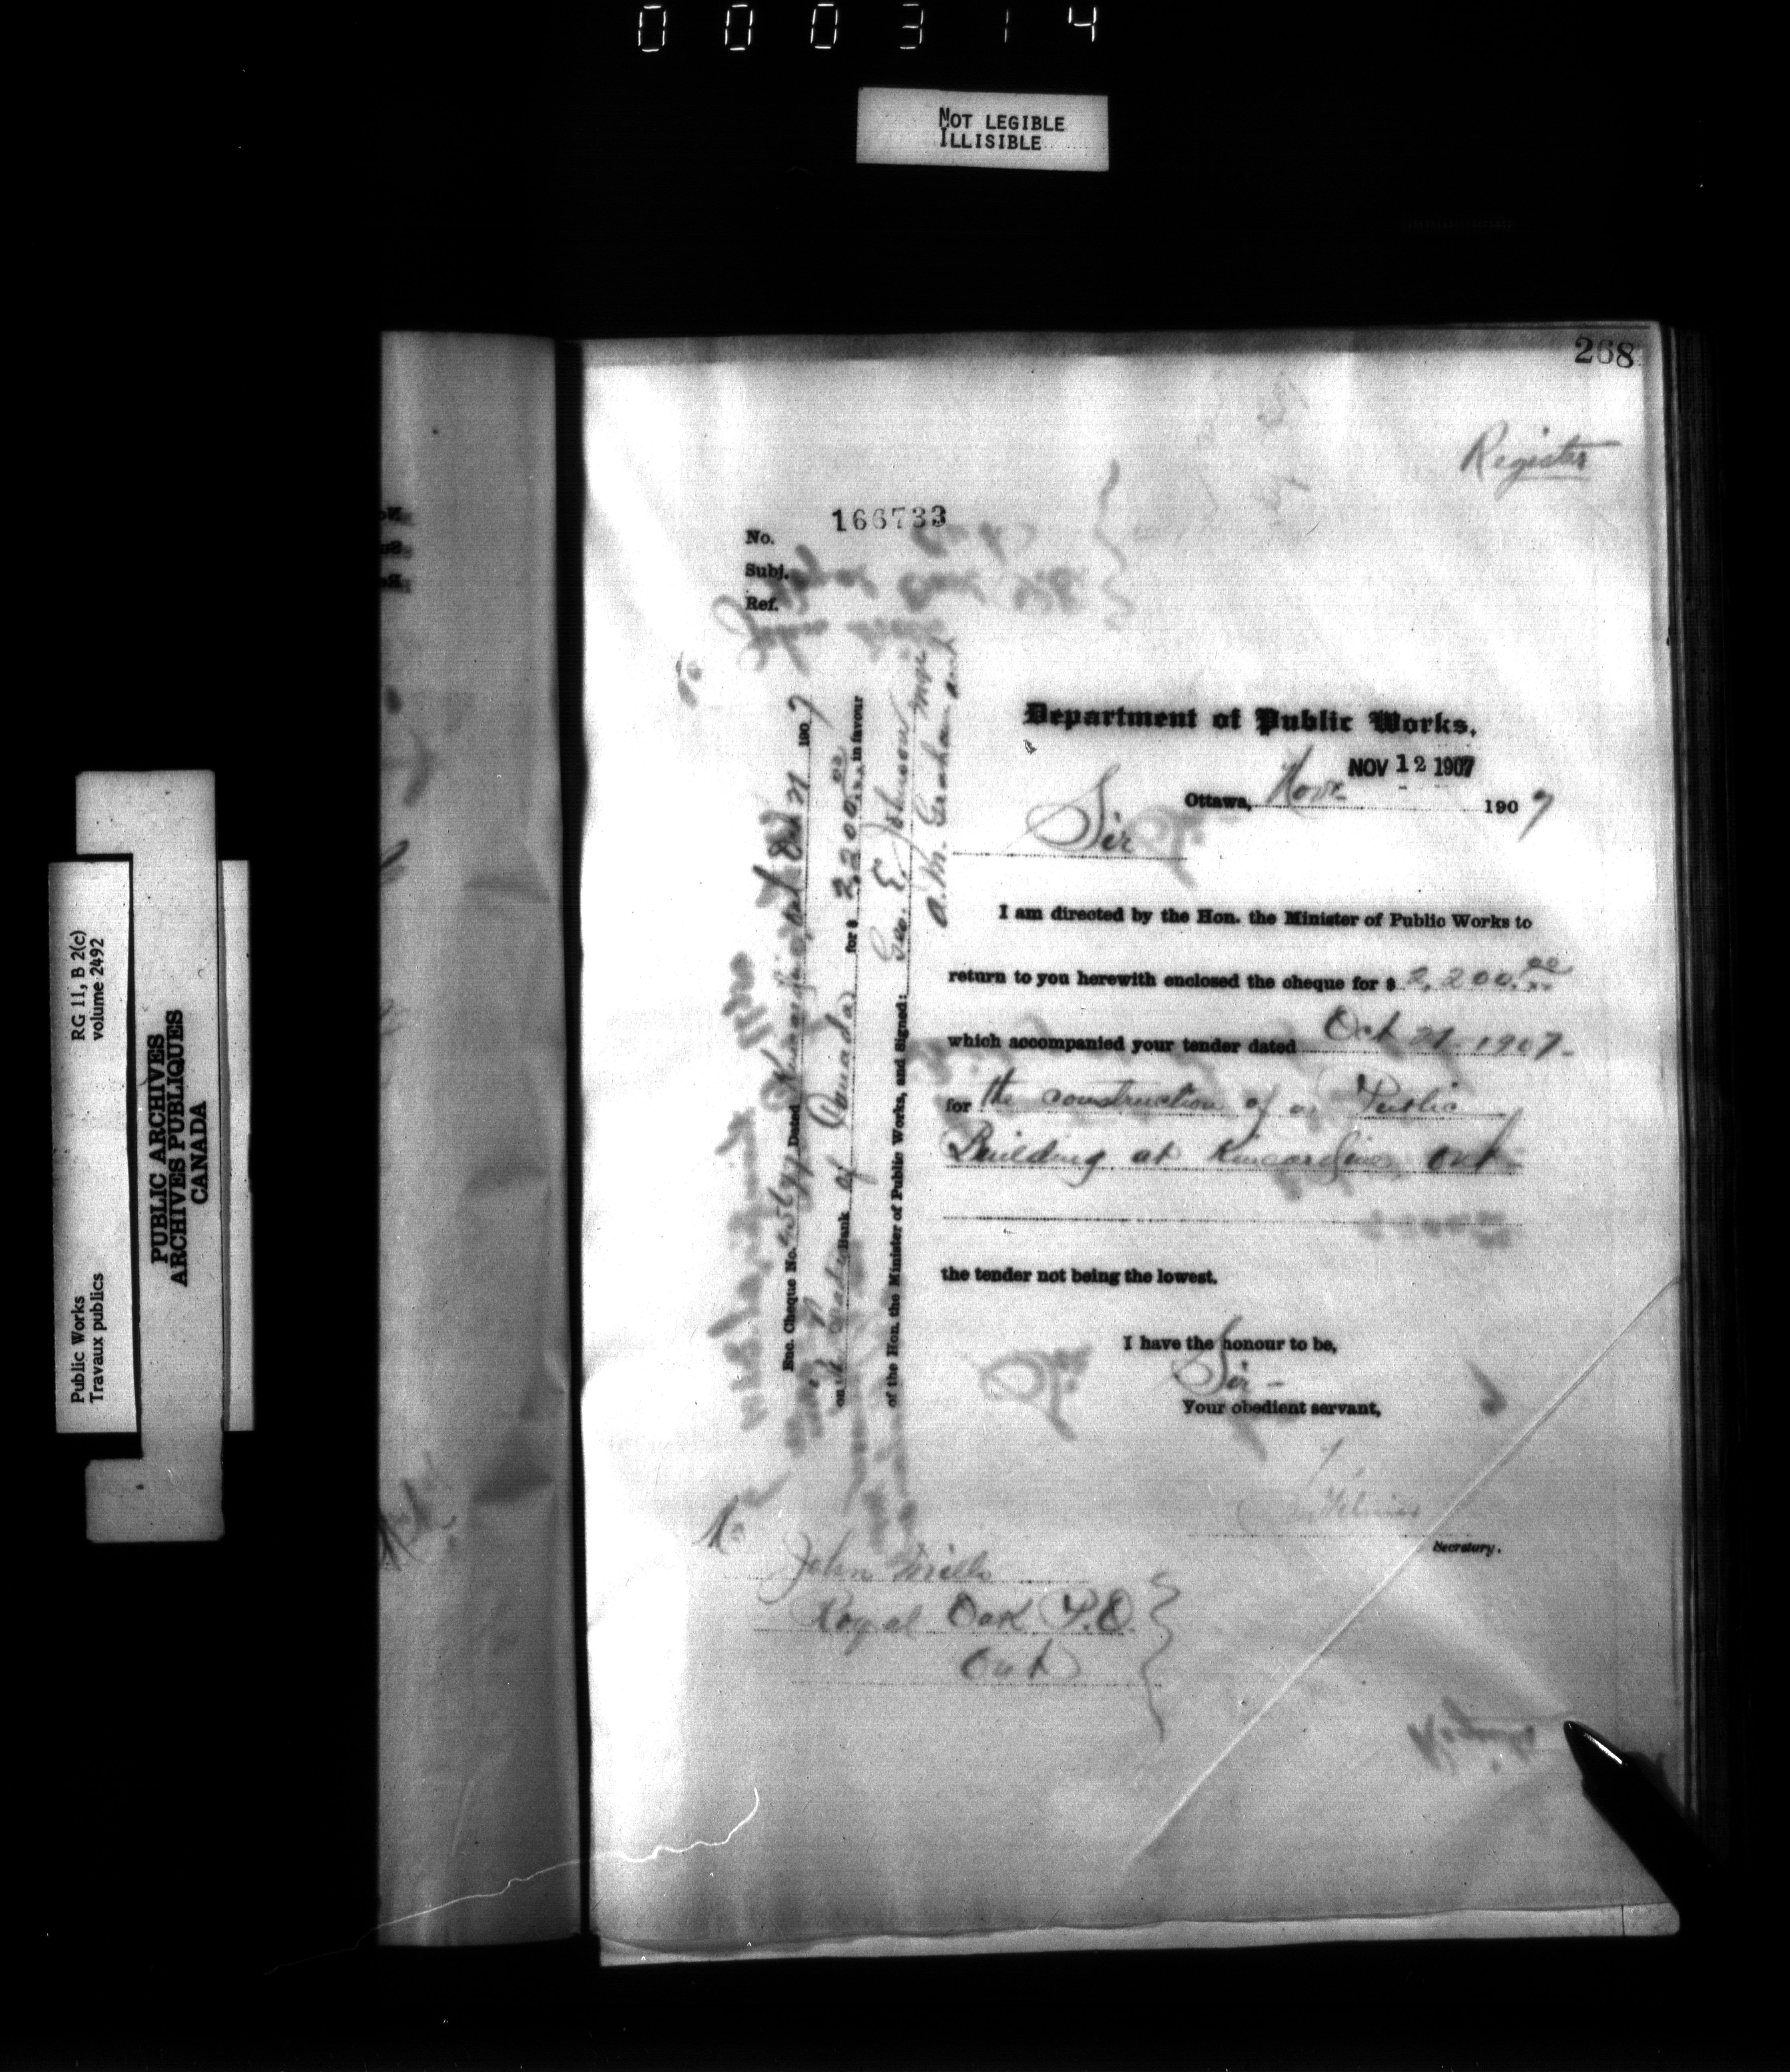 000314
NOT LEGIBLE
ILLISIBLE
268
Register
166733
No.
Subj.
Ref.
Department of Public Works.
NOV 12 1907
Ottawa, Novr 1907
Sir
I am directed by the Hon. the Minister of Public Works to
return to you herewith enclosed the cheque for $ 2,200.00/xx
which accompanied your tender dated Oct 21 1907-
for the construction of a Public
Building at Kincardine, Ont-
the tender not being the lowest.
I have the honour to be,
Sir -
Your obedient servant,
Secretary.
John Mills
Royal Oak P.O.
Ont
Enc. Cheque No. Dated Kincardine, Oct 21 1907
on Bank of Canada for $ 2,200.00/xx in favour
of the Hon. the Minister of Public Works, and Signed: Geo. E. Johnson Mgr
A.M. Graham acct
Public Works
Travaux publics
RG 11, B 2(c)
volume 2492
PUBLIC ARCHIVES
ARCHIVES PUBLIQUES
CANADA